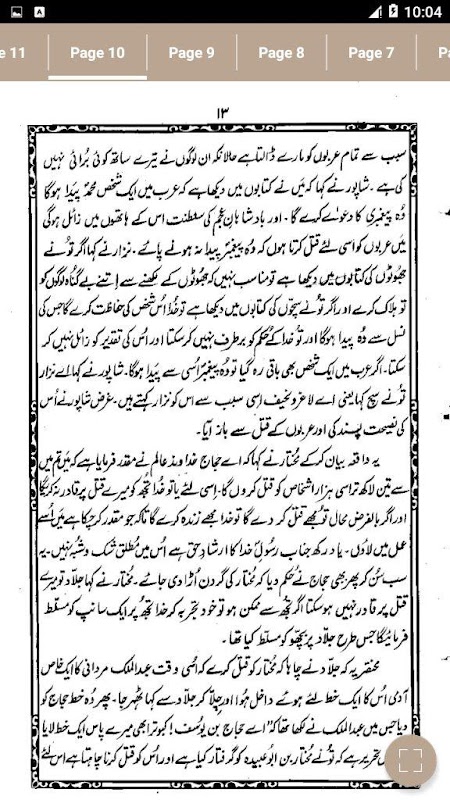 10:04
A
e 11
Page 10
Page 9
Page 8
Page 7
Pa
۱۳
سبب سے تمام عربوں کو مارے ڈالتا ہے حالانکہ ان لوگوں نے تیرے ساتھ کوئی بُرائی نہیں
کی ہے ۔ شاپور نے کہا کہ میں نے کتابوں میں دیکھا ہے کہ عرب میں ایک شخص محمدؐ پیدا ہوگا
وہ پیغمبری کا دعوے کرے گا ۔ اور بادشاہانِ عجم کی سلطنت اس کے ہاتھوں میں زائل ہوگی
میں عربوں کو اسی لئے قتل کرتا ہوں کہ وہ پیغمبر پیدا نہ ہونے پائے ۔ نزار نے کہا اگر تُو نے
جھوٹوں کی کتابوں میں دیکھا ہے تو مناسب نہیں کہ جھوٹوں کے لکھنے سے اتنے بے گناہ لوگوں کو
تو ہلاک کرے اور اگر تُو نے سچّوں کی کتابوں میں دیکھا ہے تو خدا اُس شخص کی حفاظت کرے گا جس کی
نسل سے وہ پیدا ہوگا اور تو خدا کے حکم کو برطرف نہیں کر سکتا اور اُس کی تقدیر کو زائل نہیں کر
سکتا ۔ اگر عرب میں ایک شخص بھی باقی رہ گیا تو وہ پیغمبر اُسی سے پیدا ہوگا ۔ شاپور نے کہا اے نزار
تُو نے سچ کہا یعنی اے لاغر و نحیف اسی سبب سے اس کو نزار کہتے ہیں ۔ غرض شاپور نے اُس
کی نصیحت پسند کی اور عربوں کے قتل سے باز آیا ۔
یہ واقعہ بیان کر کے مختار نے کہا کہ اے حجاج خداوندِ عالم نے مقدر فرمایا ہے کہ میں تم میں
سے تین لاکھ تراسی ہزار اشخاص کو قتل کروں گا ۔ اِسی لئے یا تو خدا تجھ کو میرے قتل پر قادر نہ کریگا
اور اگر بالفرضِ محال تُو مجھے قتل کر دے گا تو خدا مجھے زندہ کرے گا تاکہ جو مقدر کر چکا ہے میں اُسے
عمل میں لاؤں ۔ یاد رکھ جناب رسولِؐ خدا کا ارشاد حق ہے اُس میں مُطلق شک و شُبہ نہیں ۔ یہ
سب سُن کر پھر بھی حجاج نے حُکم دیا کہ مُختار کی گردن اُڑا دی جائے ۔ مختار نے کہا جلّاد تو میرے
قتل پر قادر نہیں ہو سکتا اگر تجھ سے ممکن ہو تو خود تجربہ کر خدا تجھ پر ایک سانپ کو مسلّط
فرمائیگا جس طرح جلّاد پر بچھّو کو مسلّط کیا تھا ۔
مختصر یہ کہ جلّاد نے چاہا کہ مختار کو قتل کرے کہ اُسی وقت عبدالملک مردانی کا ایک خاص
آدمی اُس کا ایک خط لئے ہوئے داخل ہُوا اور چلّا کر جلّاد سے کہا ٹھہر جا ۔ پھر وہ خط حجاج کو
دیا جس میں عبدالملک نے لکھا تھا کہ "اے حجاج بن یوسف! کبوتر ابھی میرے پاس ایک خط لایا
تحریر ہے کہ تُو نے مختار بن ابوعبیدہ کو گرفتار کیا ہے اور اُس کو قتل کرنا چاہتا ہے اس لئے